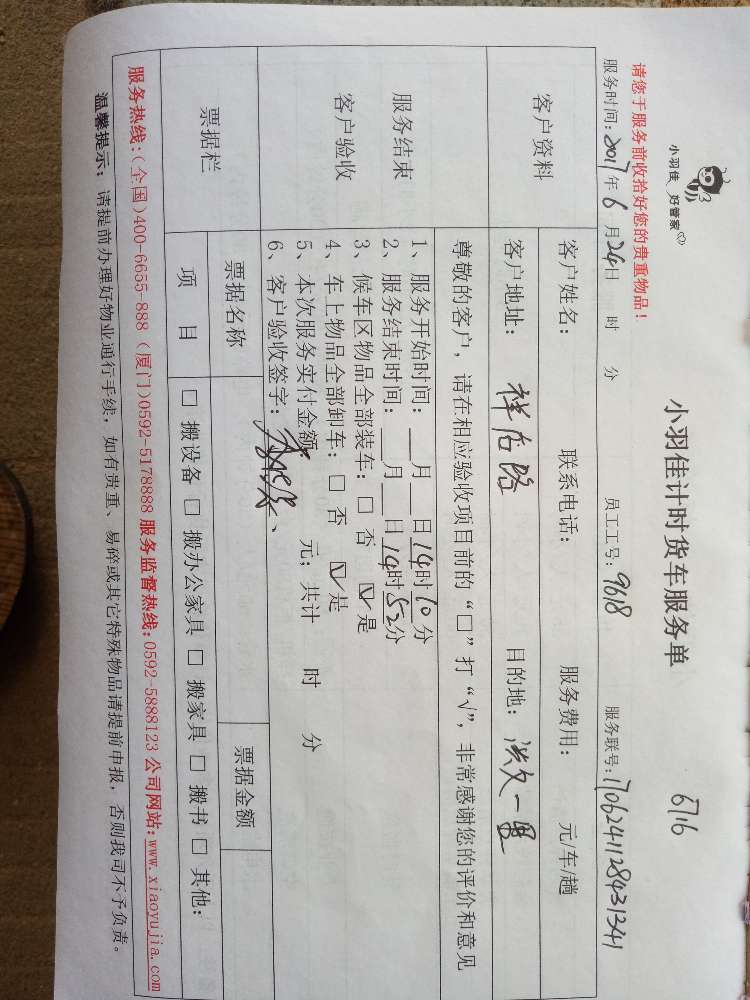 小羽佳 好管家
小羽佳计时货车服务单
6716
请您于服务前收拾好您的贵重物品！
服务时间：2017年6月24日 时 分 员工工号：9618 服务联号：1706241128431341
客户资料
客户姓名： 联系电话： 服务费用： 元/车/趟
客户地址：祥店路 目的地：洪文一里
尊敬的客户，请在相应验收项目前的“□”打“√”，非常感谢您的评价和意见
服务结束
客户验收
1、服务开始时间：__月__日14时10分
2、服务结束时间：__月__日14时52分
3、候车区物品全部装车：□ 否 ☑ 是
4、车上物品全部卸车：□ 否 ☑ 是
5、本次服务实付金额 元；共计 时 分
6、客户验收签字：
票据栏
票据名称 票据金额
项 目 □ 搬设备 □ 搬办公家具 □ 搬家具 □ 搬书 □ 其他：
服务热线：(全国)400-6655-888 (厦门)0592-5178888 服务监督热线：0592-5888123 公司网站：www.xiaoyujia.com
温馨提示：请提前办理好物业通行手续，如有贵重、易碎或其它特殊物品请提前申报，否则我司不予负责。